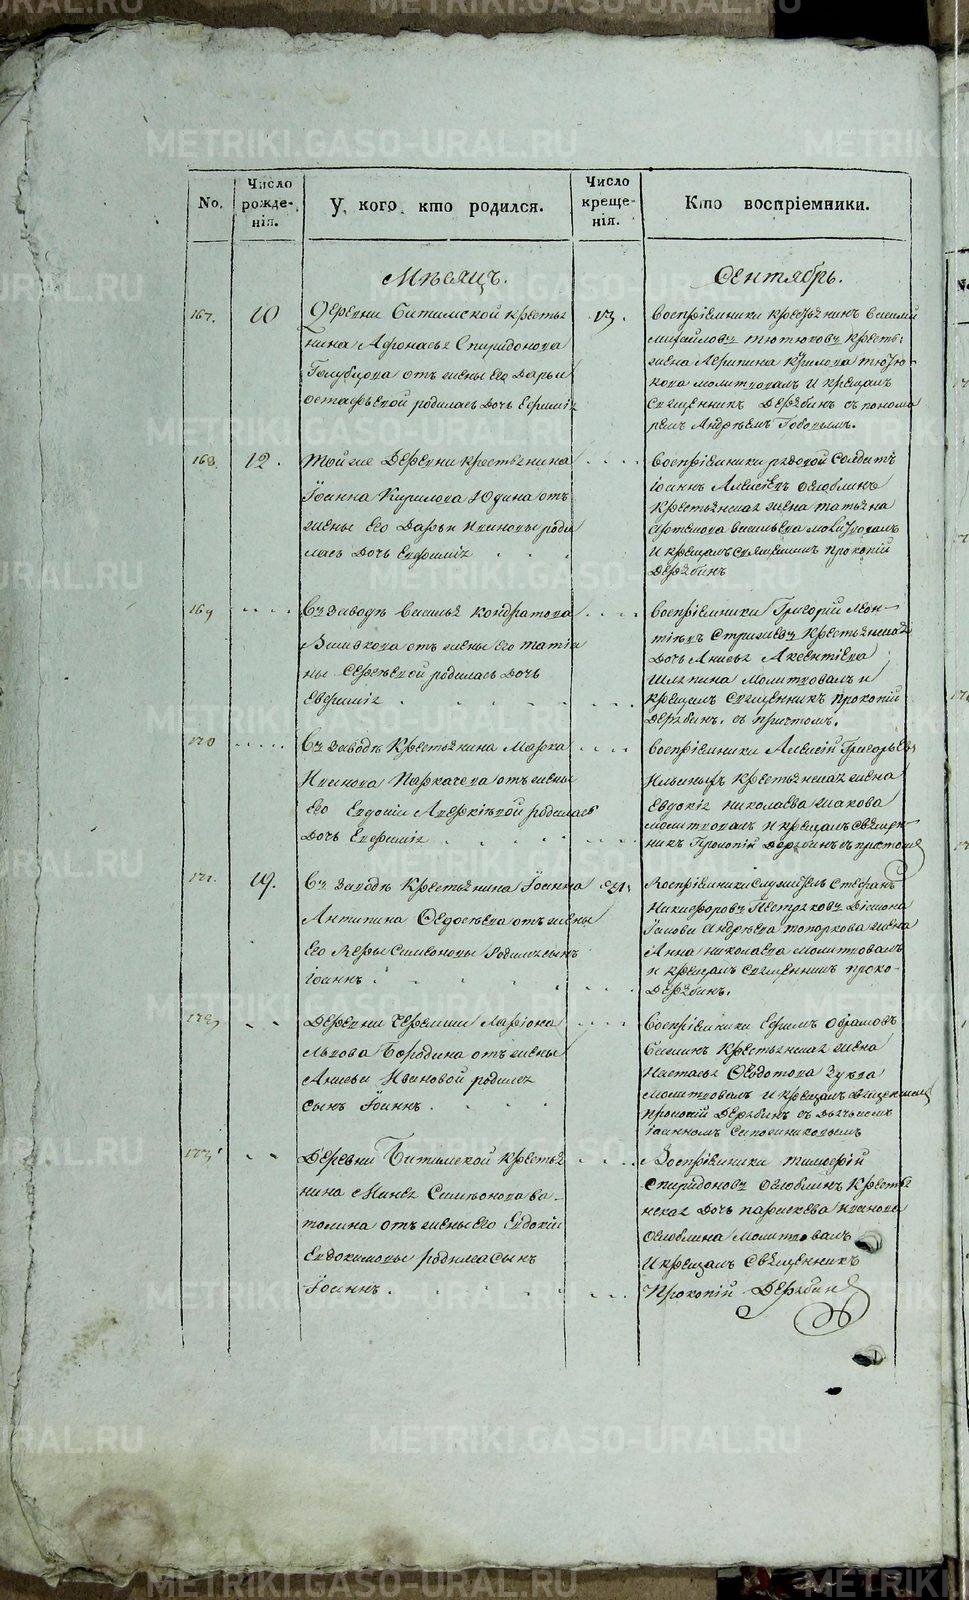 No.
Число рожде- нія.
У кого кто родился.
Число креще- нія.
Кто воспріемники.
Мѣсяцъ.
Сентябрь.
167.
10
Деревни Битимской крестья
нина Афонасья Спиридонова
Голубцова отъ жены его Дарьи
Остафьевой родилась дочь Ефимія
13.
Воспріемники крестьянинъ Василій
Михайловъ Тютюковъ крестья:
жена Агрипина Кирилова Тютю-
кова молитвовалъ и крещалъ
Священникъ Дерябинъ съ понома
ремъ Андрѣемъ
168.
12.
Той же деревни крестьянина
Іоанна Кирилова Юдина отъ
жены его Дарьи Ивановы роди
лась дочь Ефимія
Воспріемники рядовой солдатъ
Іоаннъ Алексѣевъ
крестьянская жена Татьяна
Артемова Васильева молитвовалъ
и крещалъ священникъ Прокопій
Дерябинъ
169
Въ заводѣ Василья Кондратова
отъ жены его Татія
ны Сергѣевой родилась дочь
Евфимія
Воспріемники Григорій Леон-
тьевъ крестьянская
дочь Анисья Аксентіева
Шляпина молитвовалъ и
крещалъ священникъ Прокопій
Дерябинъ. съ причтомъ.
170
Въ заводѣ крестьянина Марка
Иванова отъ жены
его Евдокіи родилась
дочь Евфимія
Воспріемники Алексій Григорьевъ
Ильиныхъ крестьянская жена
Евдокія Николаева
молитвовалъ и крещалъ священ-
никъ Прокопій Дерябинъ съ причтомъ
171.
19.
Въ заводѣ крестьянина Іоанна
Антипина Федосѣева отъ жены
его Вѣры Симеоновы родился сынъ
Іоаннъ
21.
Воспріемники служитель Стефанъ
Никифоровъ Пестряковъ
Андрѣева Топоркова жена
Анна Николаева молитвовалъ
и крещалъ священникъ Проко-
Дерябинъ.
172
Деревни Черемши Ларіона
Львова Бородина отъ жены
Анисьи Ивановой родился
сынъ Іоаннъ.
Воспріемники Ефимъ Абрамовъ
крестьянская жена
Настасья Ѳеодотова Зуева
молитвовалъ и крещалъ священникъ
Прокопій Дерябинъ съ дьячкомъ
Іоанномъ Сапожниковымъ
173
Деревни Битимской крестья
нина Симеонова Ва-
толина отъ жены его Евдокіи
Евдокимовы родился сынъ
Іоаннъ.
Воспріемники Тимофій
Спиридоновъ крестья
нская дочь Параскева Иванова
молитвовалъ
и крещалъ священникъ
Прокопій Дерябинъ
METRIKI.GASO-URAL.RU